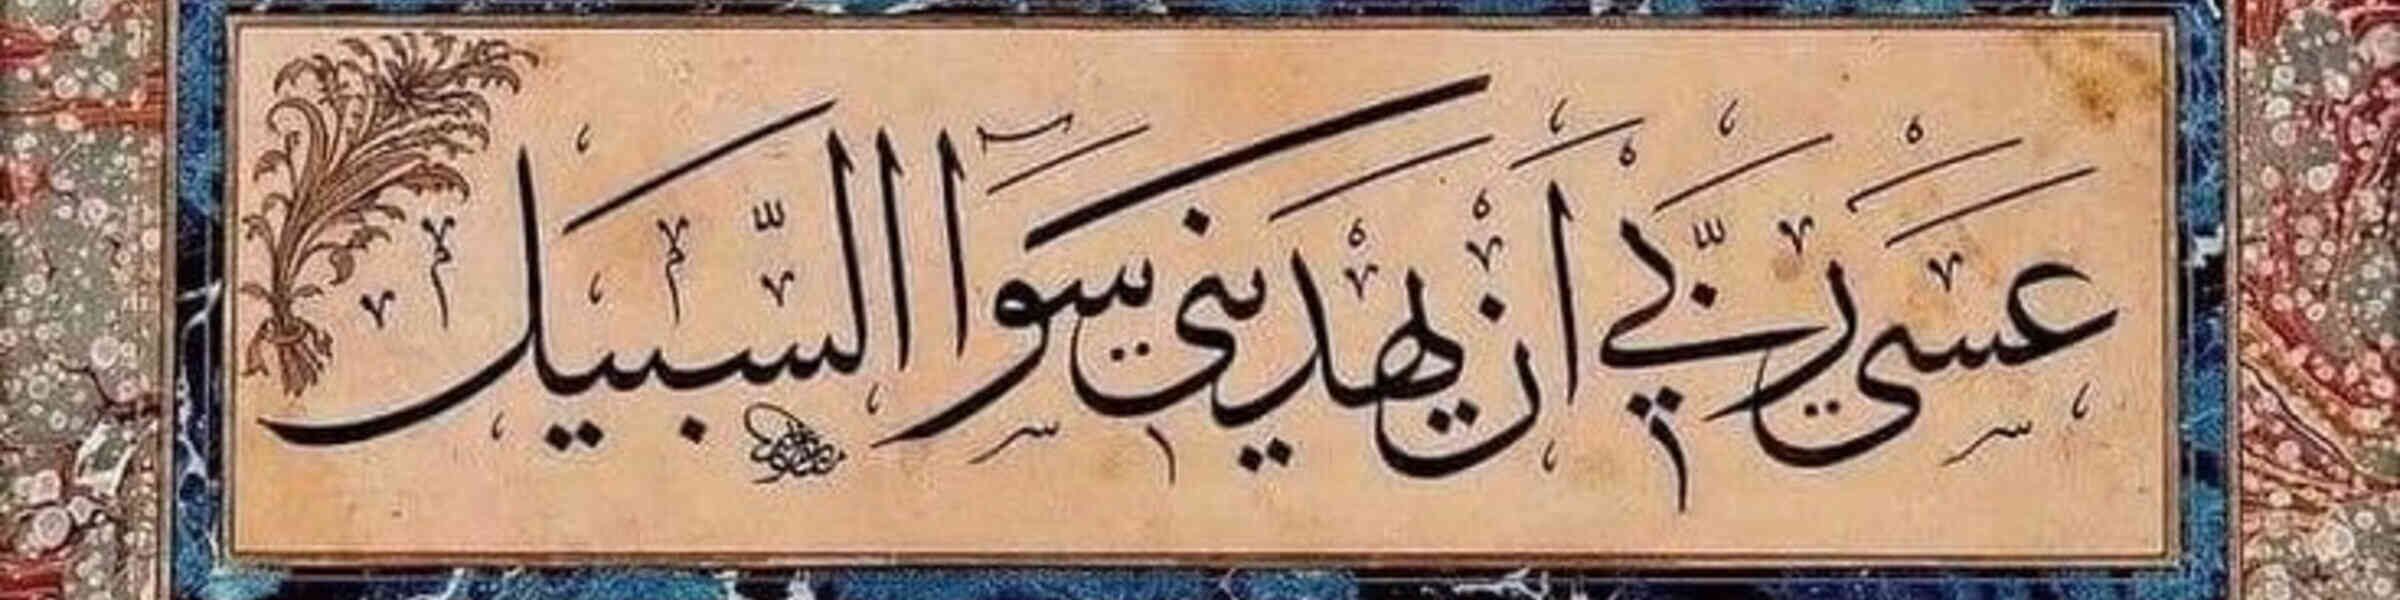 عَسٰى رَبّٖي اَنْ يَهْدِيَنٖي سَوَٓا السَّبيلِ